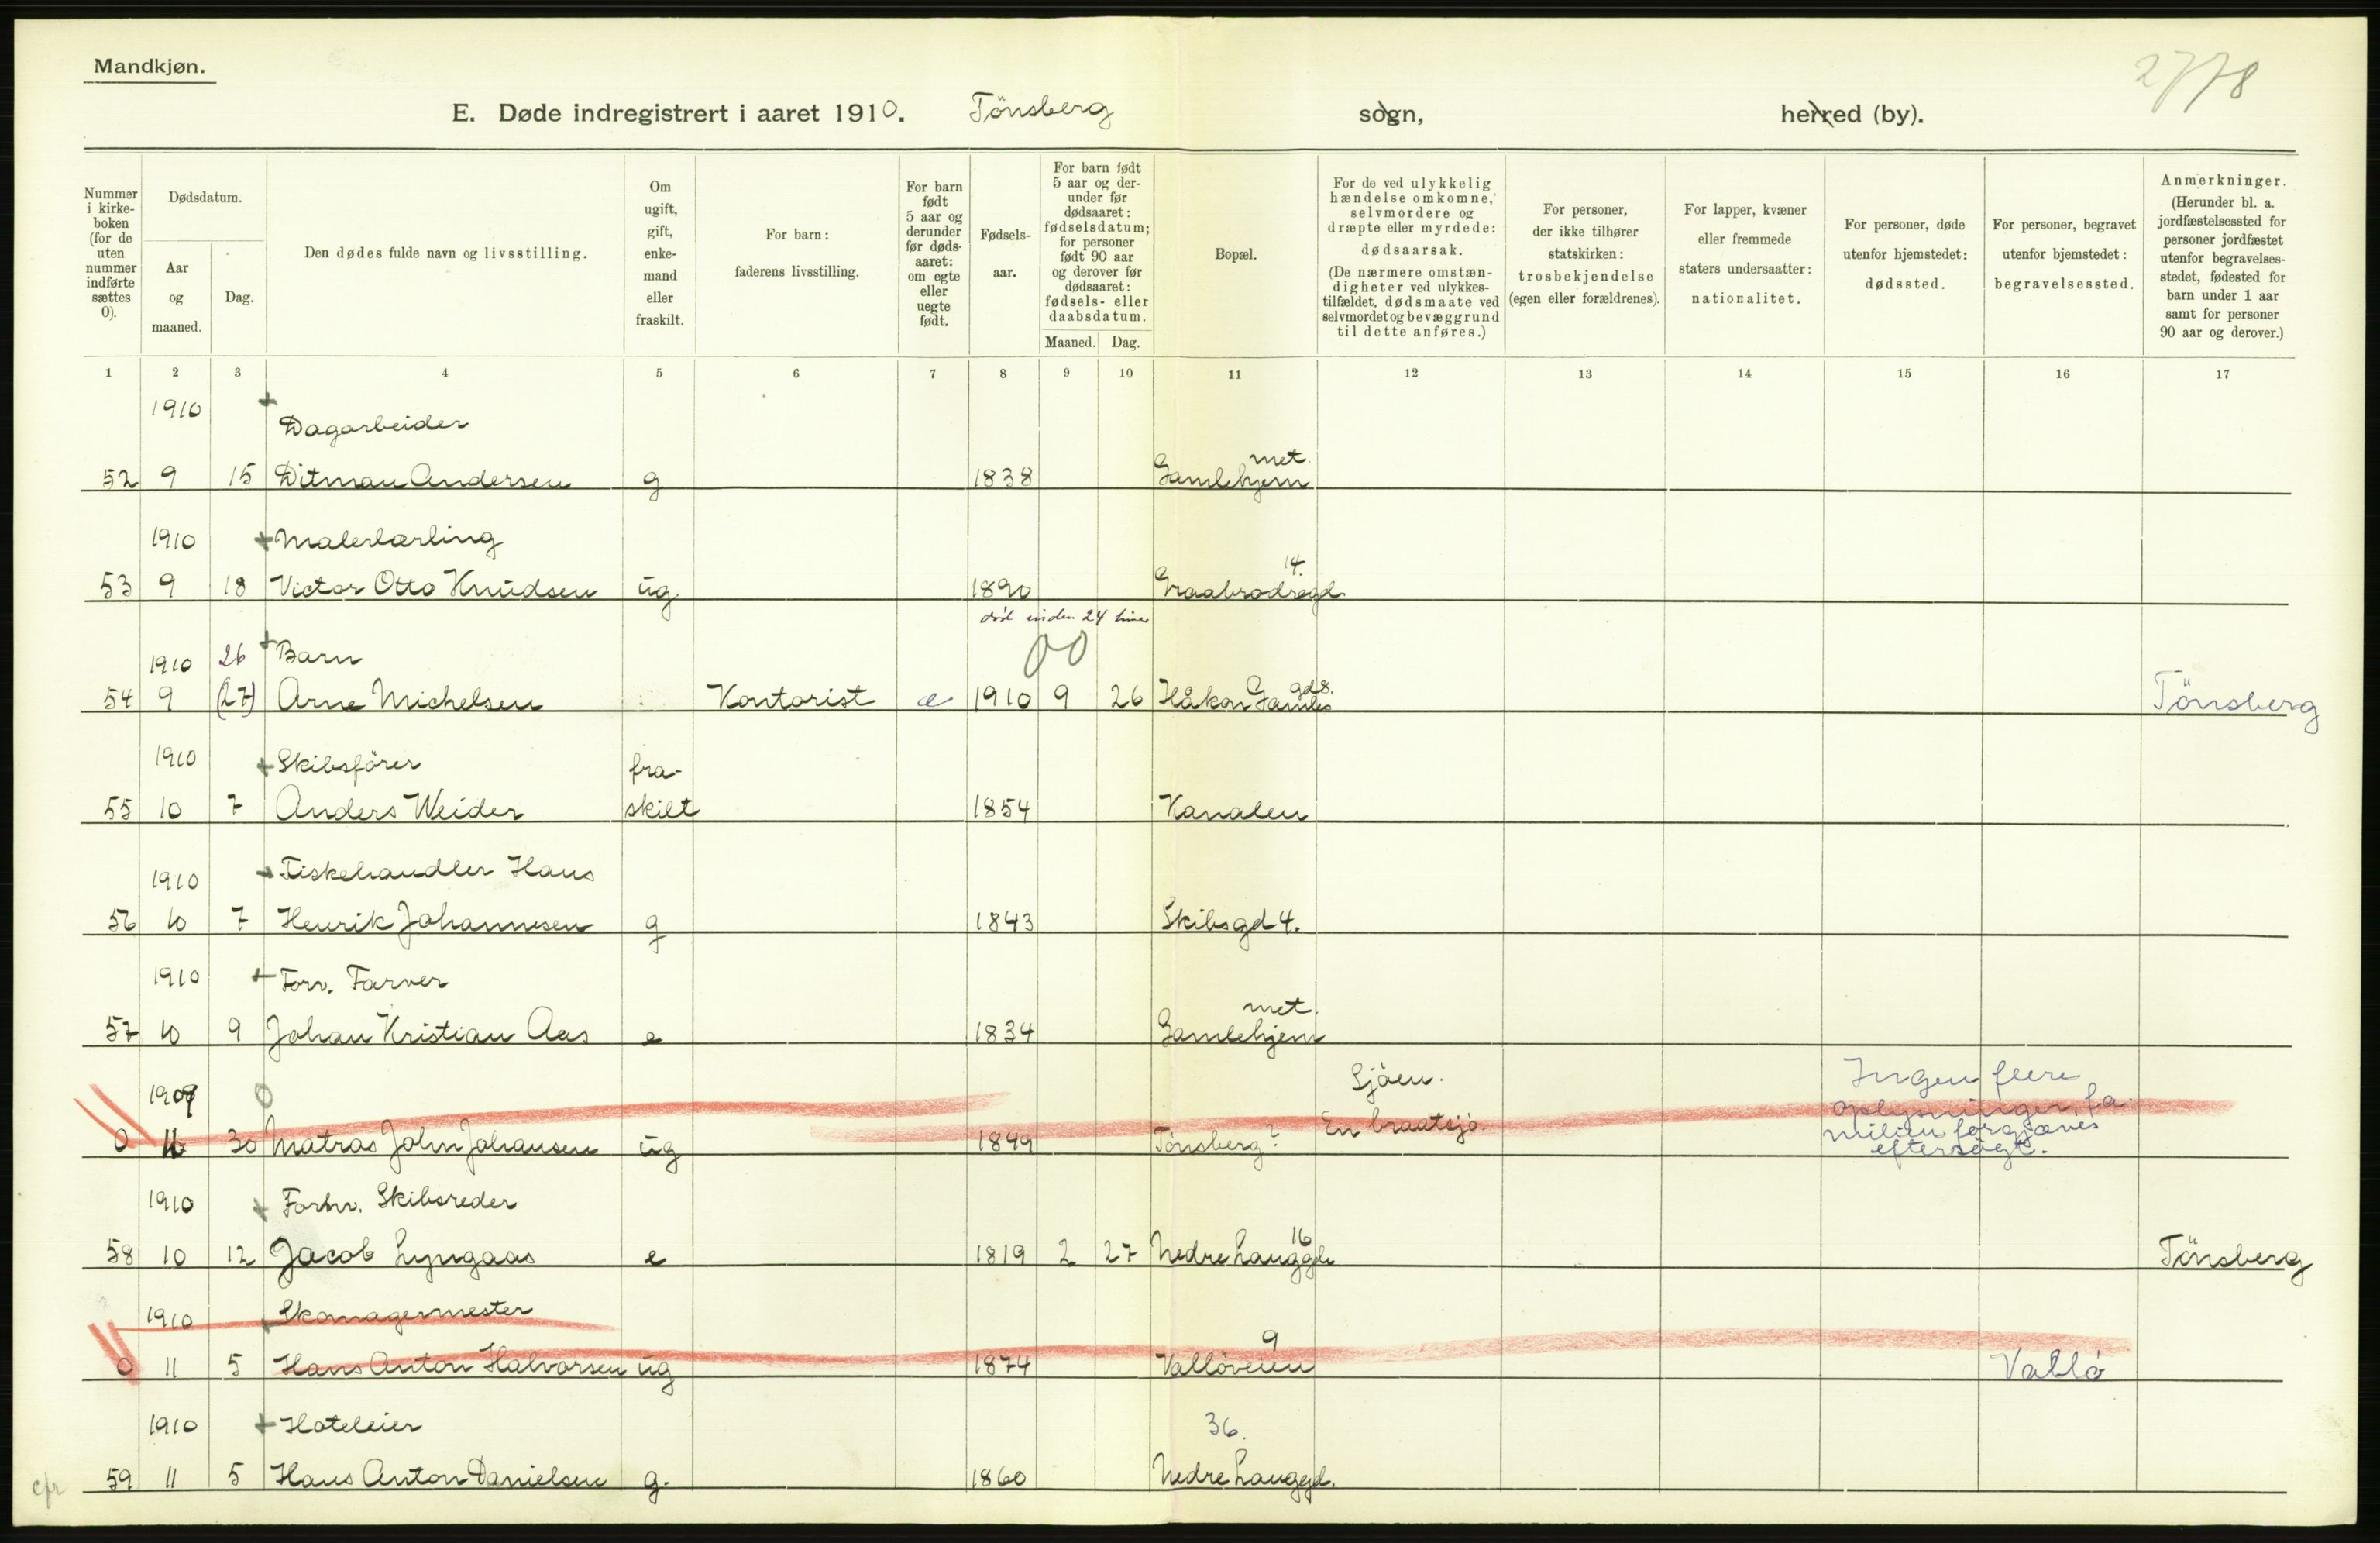 Mandkjøn.
2778
E. Døde indregistrert i aaret 1910. Tönsberg sogn, herred (by).
Nummer i kirke- boken (for de uten nummer indførte sættes 0).
Dødsdatum.
Aar og maaned.
Dag.
Den dødes fulde navn og livsstilling.
Om ugift, gift, enke- mand eller fraskilt.
For barn: faderens livsstilling.
For barn født 5 aar og derunder før døds- aaret: om egte eller uegte født.
Fødsels- aar.
For barn født 5 aar og der- under før dødsaaret: fødselsdatum; for personer født 90 aar og derover før dødsaaret: fødsels- eller daabsdatum.
Maaned. Dag.
Bopæl.
For de ved ulykkelig hændelse omkomne, selvmordere og dræpte eller myrdede: dødsaarsak. (De nærmere omstæn- digheter ved ulykkes- tilfældet, dødsmaate ved selvmordet og bevæggrund til dette anføres.)
For personer, der ikke tilhører statskirken: trosbekjendelse (egen eller forældrenes).
For lapper, kvæner eller fremmede staters undersaatter: nationalitet.
For personer, døde utenfor hjemstedet: dødssted.
For personer, begravet utenfor hjemstedet: begravelsessted.
Anmerkninger. (Herunder bl. a. jordfæstelsessted for personer jordfæstet utenfor begravelses- stedet, fødested for barn under 1 aar samt for personer 90 aar og derover.)
1 2 3 4 5 6 7 8 9 10 11 12 13 14 15 16 17
1910 + Dagarbeider
met.
52 9 15 Ditman Andersen g 1838 Gamlehjem
1910 + Malerlærling
14.
53 9 18 Victor Otto Knudsen ug. 1890 Graabrødregd.
död inden 24 timer
1910 26 + Barn 00
gd 8.
54 9 (27) Arne Michelsen Kontorist e 1910 9 26 Håkon Gamles Tönsberg
1910 + Skibsförer fra-
55 10 7 Anders Weider skilt 1854 Kanalen
1910 + Fiskehandler Hans
56 10 7 Henrik Johannesen g 1843 Skibsgd 4.
1910 + Forv. Farver
met.
57 10 9 Johan Kristian Aas e 1834 Gamlehjem
1909 0 Sjöen. Ingen flere
oplysninger, fa-
0 30 Matros John Johansen ug 1849 Tönsberg? En braatsjö. milien forgjæves
eftersögt.
1910 + Forhv. Skibsreder
16
58 10 12 Jacob Lyngaas e 1819 2 27 Nedre Langgde Tönsberg
1910 + Skomagermester
9
0 11 5 Hans Anton Halvorsen ug 1874 Vallöveien Vallö
1910 + Hoteleier 36.
cfr 59 11 5 Hans Anton Danielsen g. 1860 Nedre Langgd.